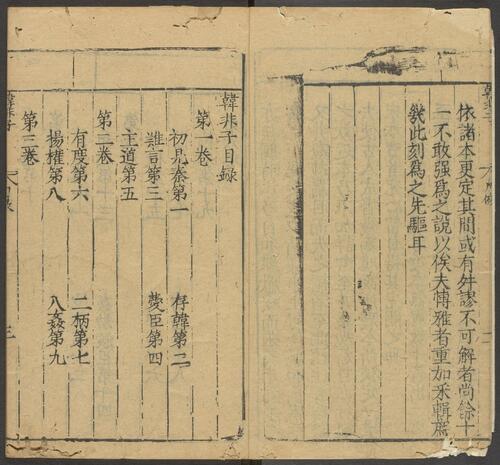 依諸本更定其間或有舛謬不可解者尚餘十
一不敢强爲之說以俟夫愽雅者重加釆輯庶
幾此刻爲之先驅耳
韓非子目録
第一卷
初見秦第一 存韓第二
難言第三 愛臣第四
主道第五
第二卷
有度第六 二柄第七
揚權第八 八姦第九
第三卷
韓非子 目録 三